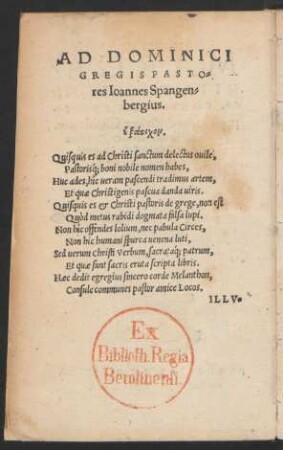 AD DOMINICI
GREGIS PASTO-
res Ioannes Spangen-
bergius.
Quisquis es ad Christi sanctum delectus ouile,
Pastorisq; boni nobile nomen habes,
Huc ades, hic ueram pascendi tradimus artem,
Et quæ Christigenis pascua danda uiris.
Quisquis es & Christi pastoris de grege, non est
Quòd metus rabidi dogmata falsa lupi,
Non hic offendes lolium, nec pabula Circes,
Non hic humani spurca uenena luti,
Sed uerum christi Verbum, sacrataq; patrum,
Et quæ sunt sacris eruta scripta libris.
Hæc dedit egregius sincero corde Melanthon,
Consule communes pastor amice Locos.
ILLV-
Ex
Biblioth. Regia
Berolinensi.